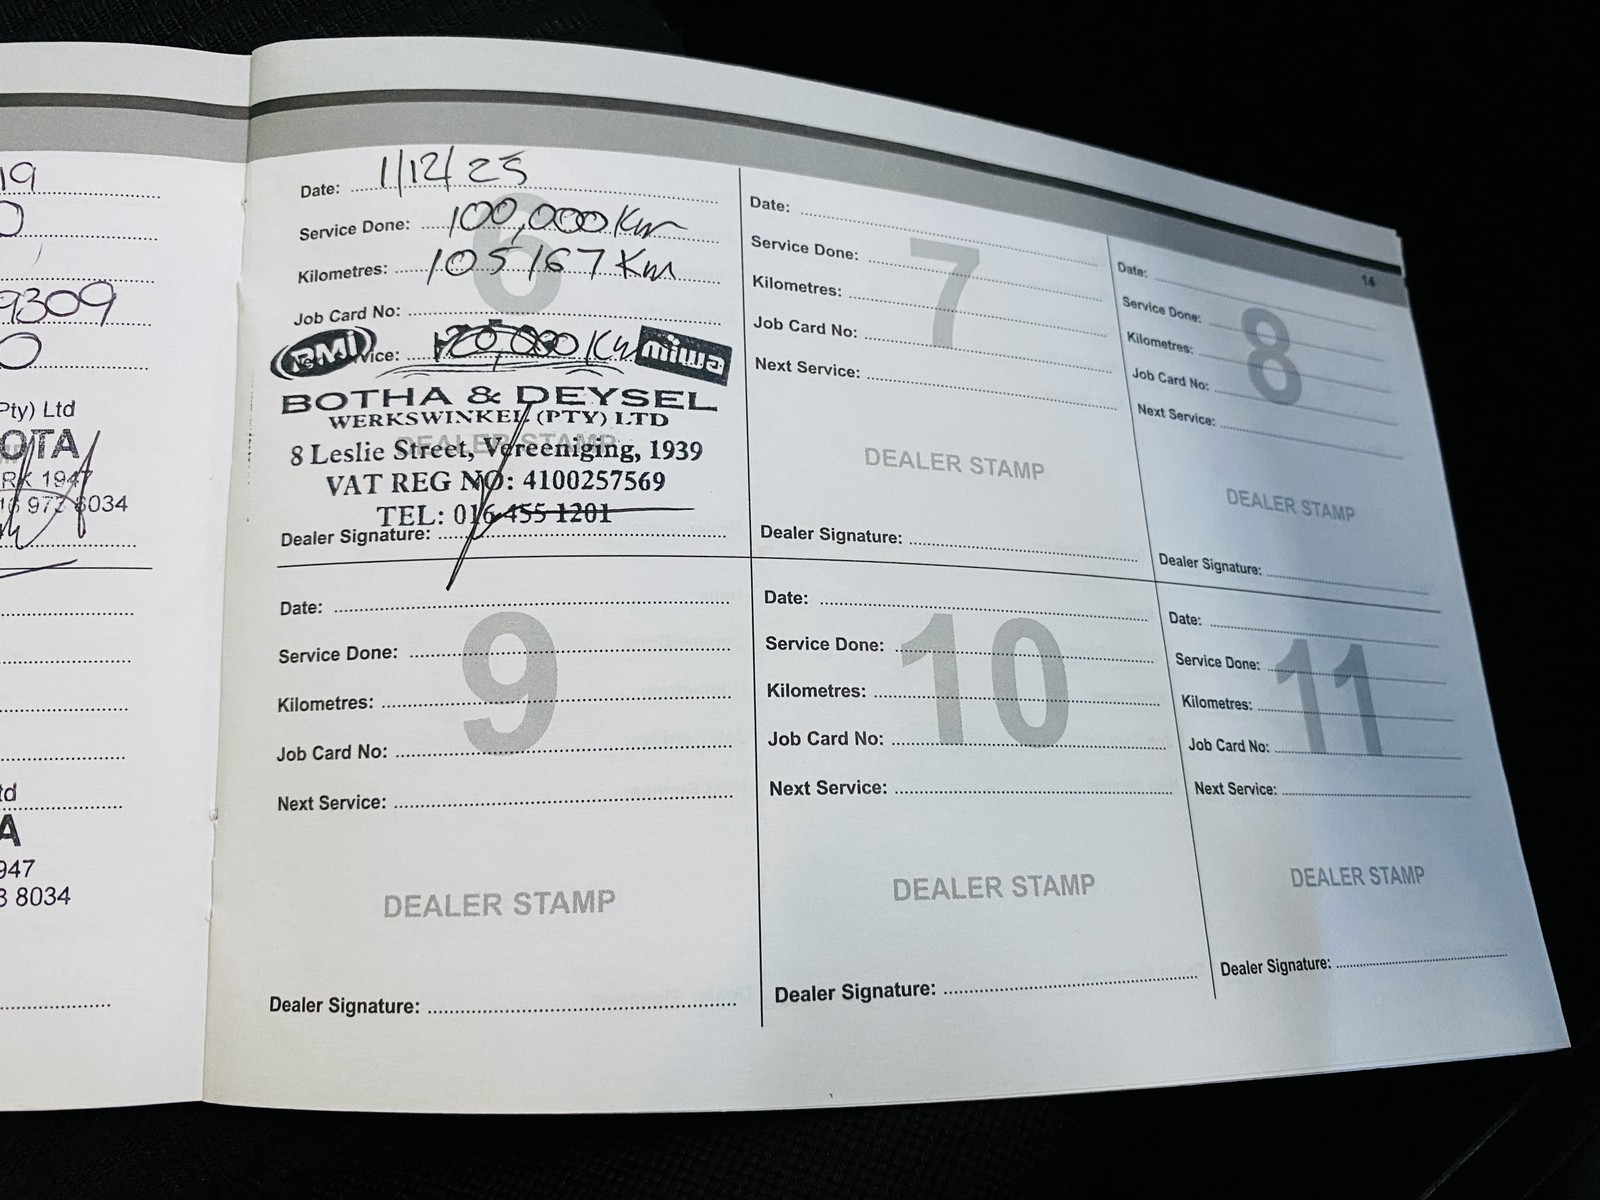 19
0
9309
0
Pty) Ltd
OTA
RK 1947
16 973 8034
td
A
947
3 8034
14
6
Date: 1/12/25
Service Done: 100,000 Km
Kilometres: 105167 Km
Job Card No:
RMI vice: 120,000 Km miwa
BOTHA & DEYSEL
WERKSWINKEL (PTY) LTD
DEALER STAMP
8 Leslie Street, Vereeniging, 1939
VAT REG NO: 4100257569
TEL: 016 455 1201
Dealer Signature:
7
Date:
Service Done:
Kilometres:
Job Card No:
Next Service:
DEALER STAMP
Dealer Signature:
8
Date:
Service Done:
Kilometres:
Job Card No:
Next Service:
DEALER STAMP
Dealer Signature:
9
Date:
Service Done:
Kilometres:
Job Card No:
Next Service:
DEALER STAMP
Dealer Signature:
10
Date:
Service Done:
Kilometres:
Job Card No:
Next Service:
DEALER STAMP
Dealer Signature:
11
Date:
Service Done:
Kilometres:
Job Card No:
Next Service:
DEALER STAMP
Dealer Signature: